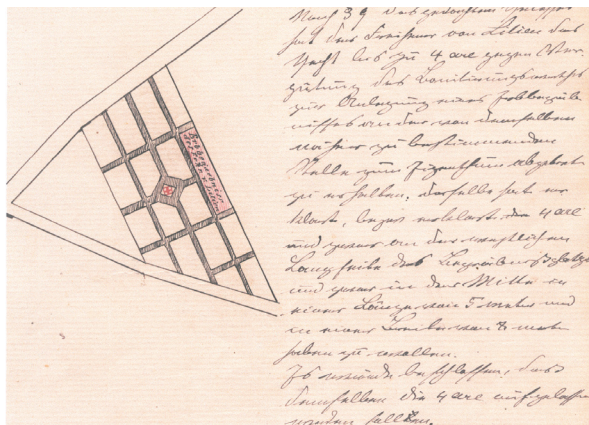 Erbbegräbniss
v. Lilien
des gedachten
hat der Freiherr von Lilien das
Recht bis zu 4 are gegen Ver-
gütung des Bonitirungswerthes
zur Anlegung eines Erbbegräb-
nisses an der von demselben
näher zu bestimmenden
Stelle zum Eigenthum
zu erhalten; derselbe hat er-
klärt, die 4 are
und zwar an der westlichen
Langseite des Begräbnißplatzes
und zwar in der Mitte in
einer Länge von 5 meter und
in einer Breite von 8 meter
haben zu wollen.
Es wurde beschlossen, daß
demselben die 4 are aufgelassen
werden sollten.